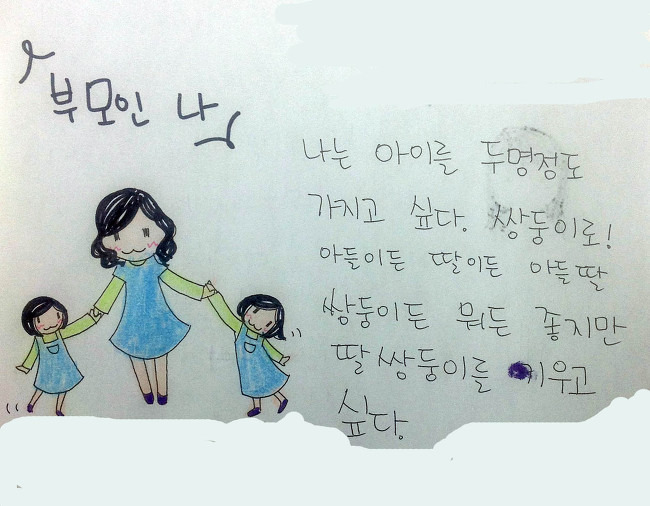 부모인 나
나는 아이를 두명정도
가지고 싶다. 쌍둥이로!
아들이든 딸이든 아들딸
쌍둥이든 뭐든 좋지만
딸쌍둥이를 키우고
싶다.